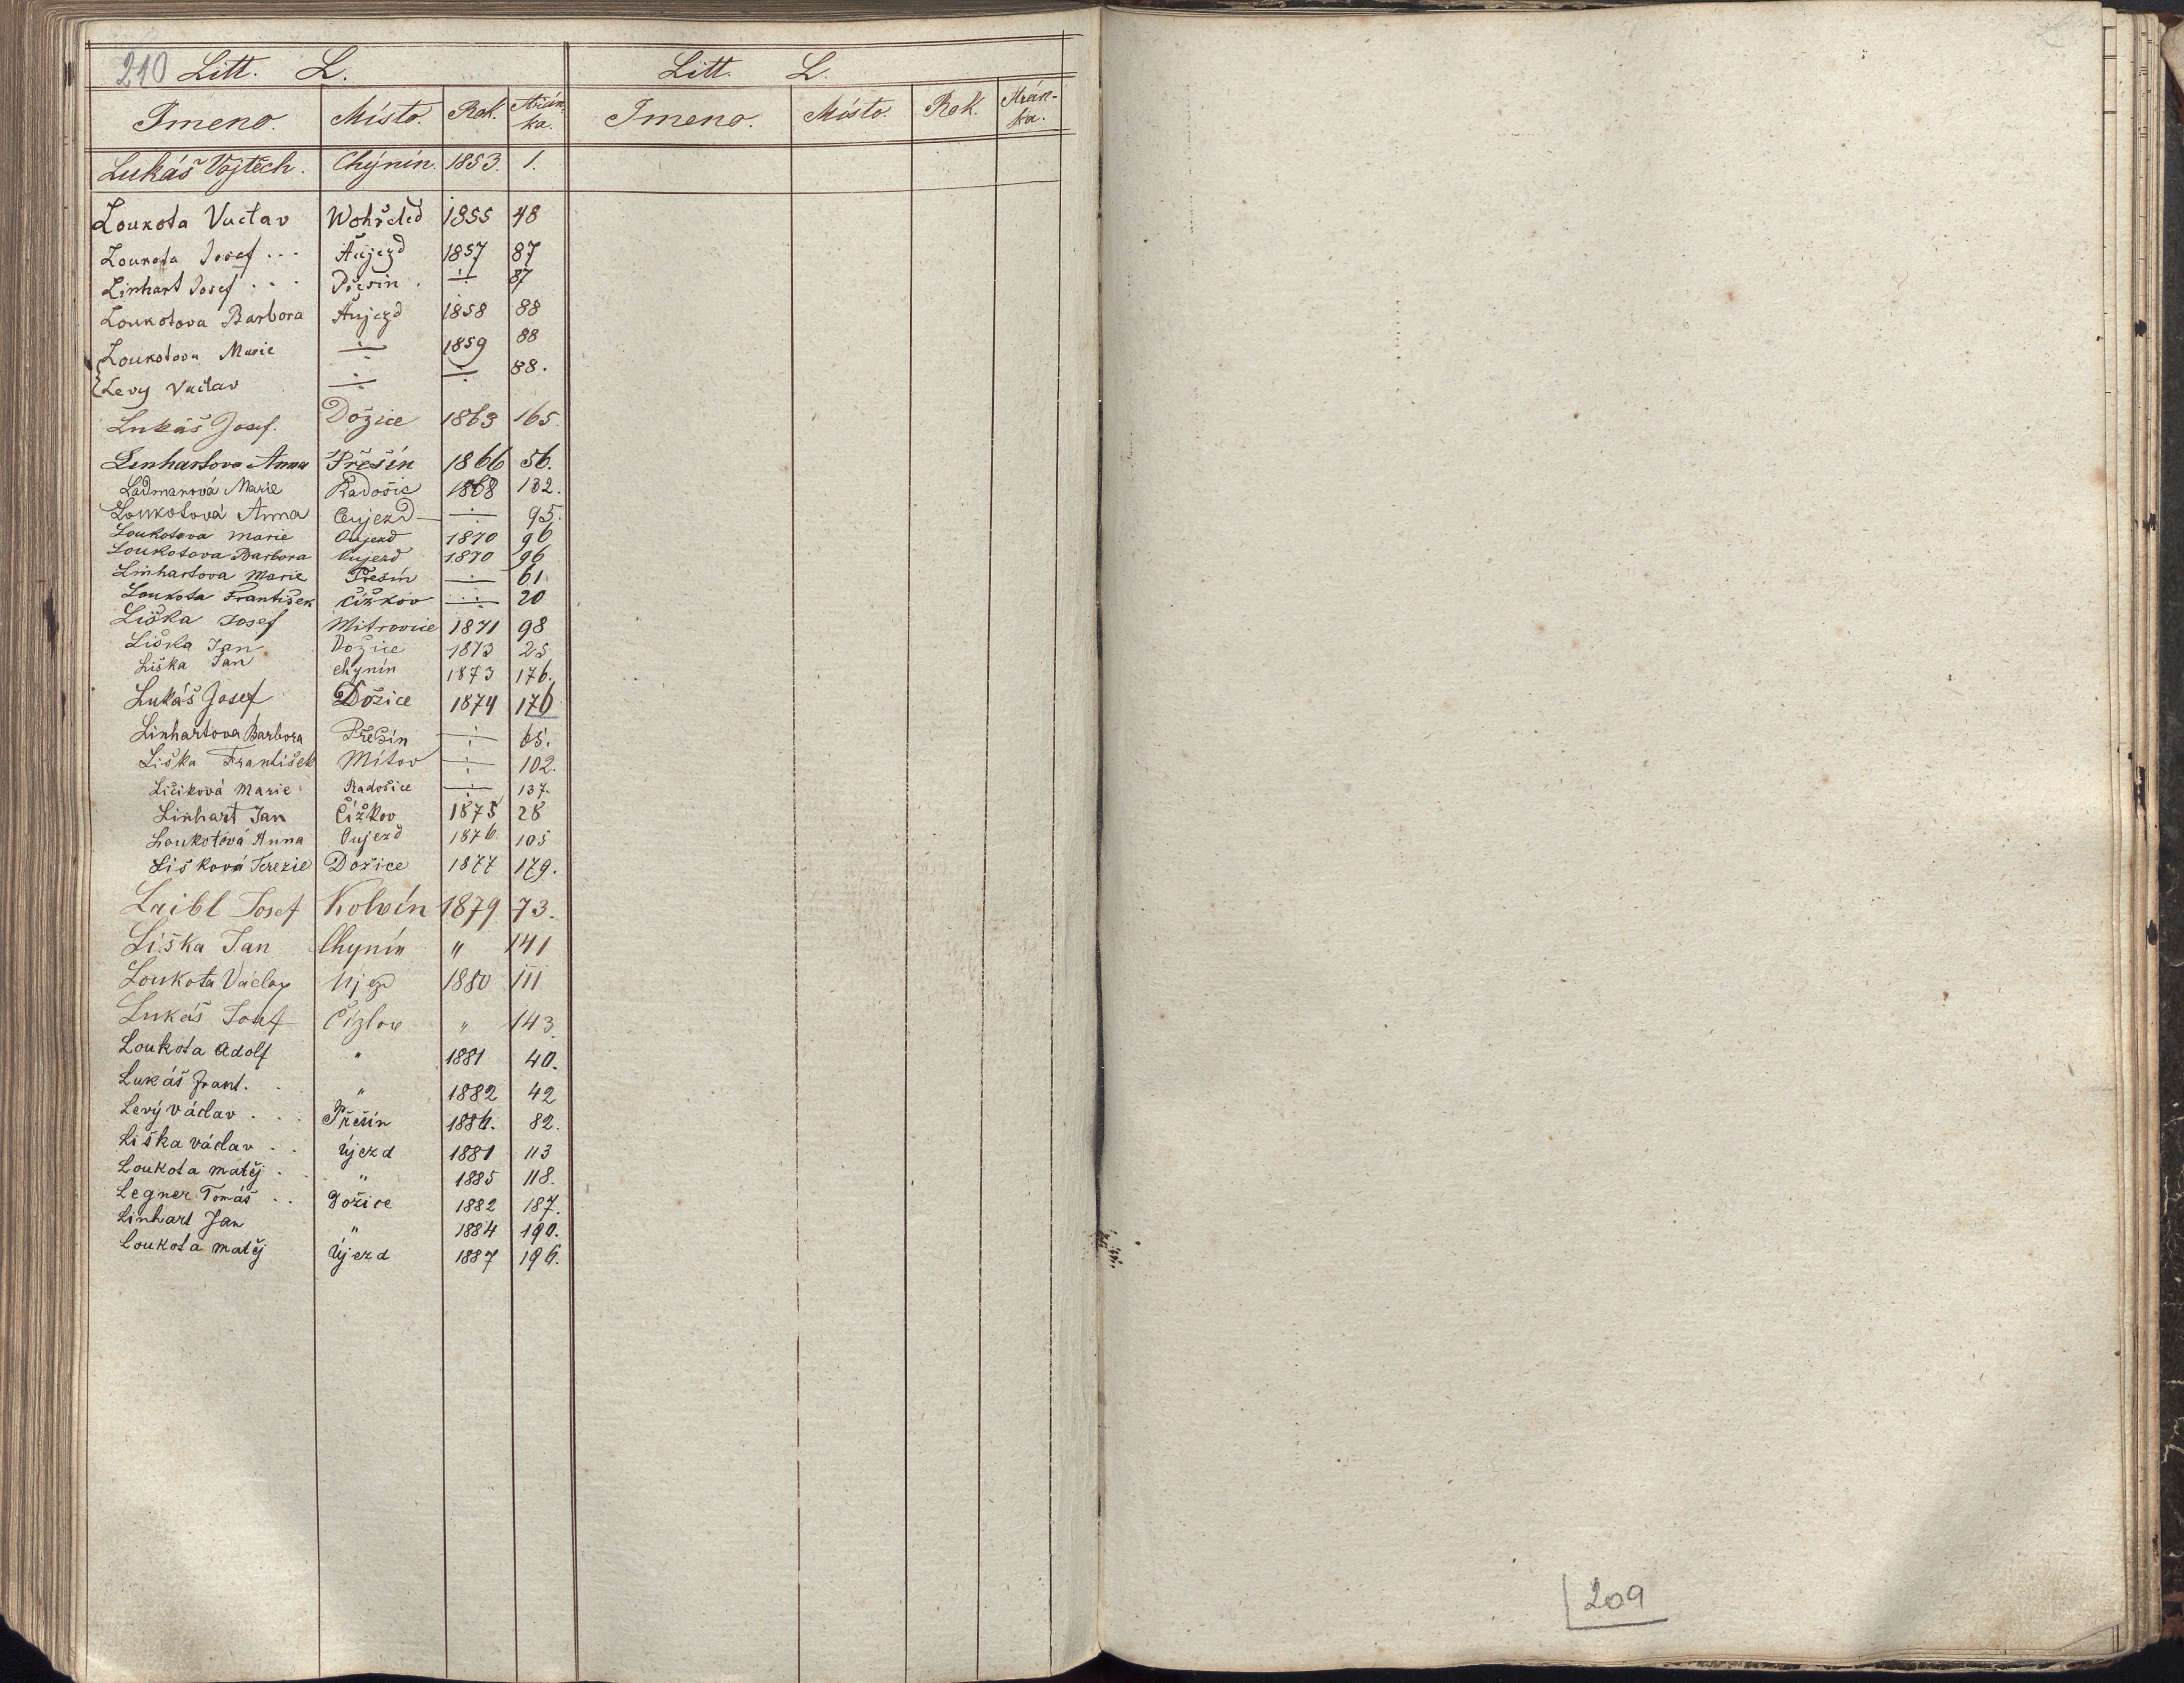 210 Litt. L. Litt. L.
Jmeno. Místo. Rok. Strán- Jmeno. Místo. Rok. Strán-
ka. ka.
Lukáš Vojtěch. Chýnín. 1853. 1.
Loukota Vaclav Wohřeled 1855 48
Loukota Josef . . . Aujezd 1857 87
Linhart Josef . . . Přešin . ÷ 87
Loukotova Barbora Aujezd 1858 88
Loukotova Marie ÷ 1859 88
Levy Vaclav ÷ ÷ 88.
Lukáš Josef. Dožice 1863 165.
Linhartova Anna Přešín 1866 56.
Ladmanová Marie Radošic 1868 132.
Loukotová Anna Oujezd ÷ 95.
Loukotova Marie Oujezd 1870 96
Loukotova Barbora Oujezd 1870 96
Linhartova Marie Přešín ÷ 61.
Loukota František Čížkov ÷ 20
Liška Josef Mitrovice 1871 98
Liška Jan Dožice 1873 25
Liška Jan Chynín 1873 176.
Lukáš Josef Dožice 1874 176
Linhartova Barbora Přešín ÷ 65.
Liška František Mítov ÷ 102.
Ličiková Marie Radošice ÷ 137.
Linhart Jan Čížkov 1875 28
Loukotová Anna Oujezd 1876. 105
Lišková Terezie Dožice 1877 179.
Laibl Josef Kolvín 1879 73.
Liška Jan Chynín " 141
Loukota Václav Ujezd 1880 111
Lukáš Josef Čížkov " 143
Loukota Adolf " 1881 40.
Lukáš Frant. . " 1882 42
Levý Václav . . . Přešín 1886. 82.
Liška Václav . . Újezd 1881 113
Loukota Matěj . . " 1885 118.
Legner Tomáš . . Dožice 1882 187.
Linhart Jan " 1884 190.
Loukota Matěj Újezd 1887 196.
209